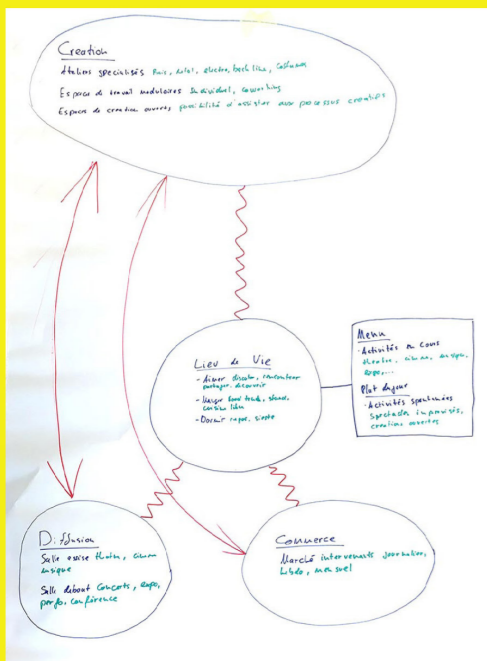 Creation
Ateliers specialisés Bois, métal, électro, back line, costumes
Espaces de travail modulaires Individuel, coworking
Espaces de creation ouverts, possibilité d'assister aux processus creatifs
Lieu de Vie
- Aimer discuter, rencontrer
partager, découvrir
- Manger food truck, stand,
cuisine libre
- Dormir repos, sieste
Menu
- Activités en cours
theatre, cinema, musique,
expo,...
Plat du jour
- Activités spontanées
Spectacles improvisés,
creations ouvertes
Diffusion
Salle assise theatre, cinema
musique
Salle debout Concerts, expo,
perfo, conférence
Commerce
Marché intervenants journalier,
hebdo, mensuel